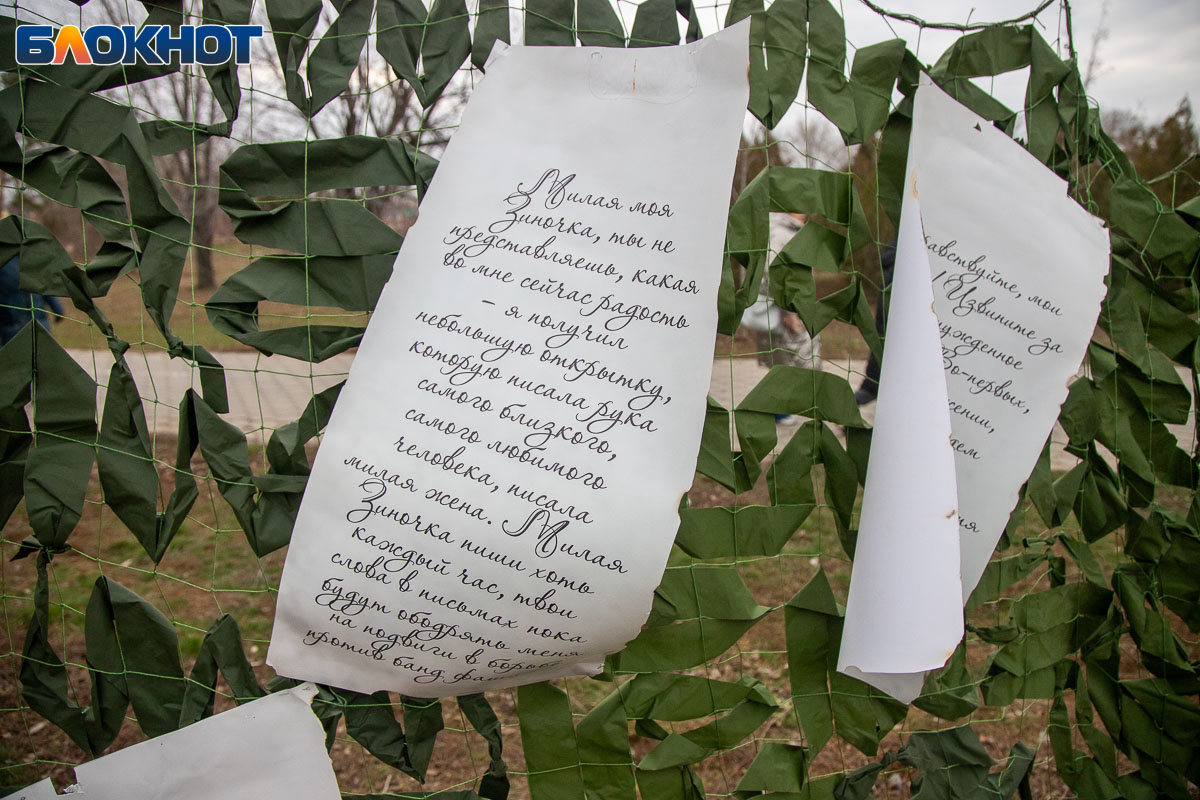 БЛОКНОТ
Милая моя
Зиночка, ты не
представляешь, какая
во мне сейчас радость
- я получил
небольшую открытку,
которую писала рука
самого близкого,
самого любимого
человека, писала
милая жена. Милая
Зиночка пиши хоть
каждый час, твои
слова в письмах пока
будут ободрять меня
на подвиги в борьбе
против банд
авствуйте, мои
! Извините за
ужденное
о-первых,
сении,
дем
ия